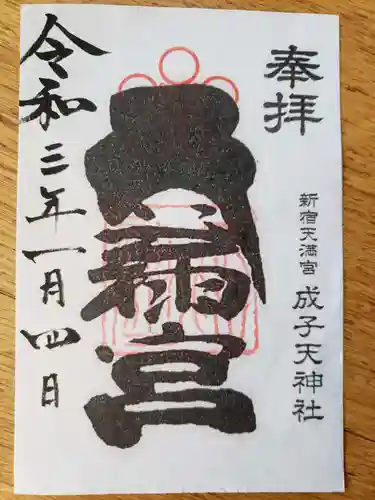 奉拝
新宿天満宮 成子天神社
天満宮
令和三年一月四日